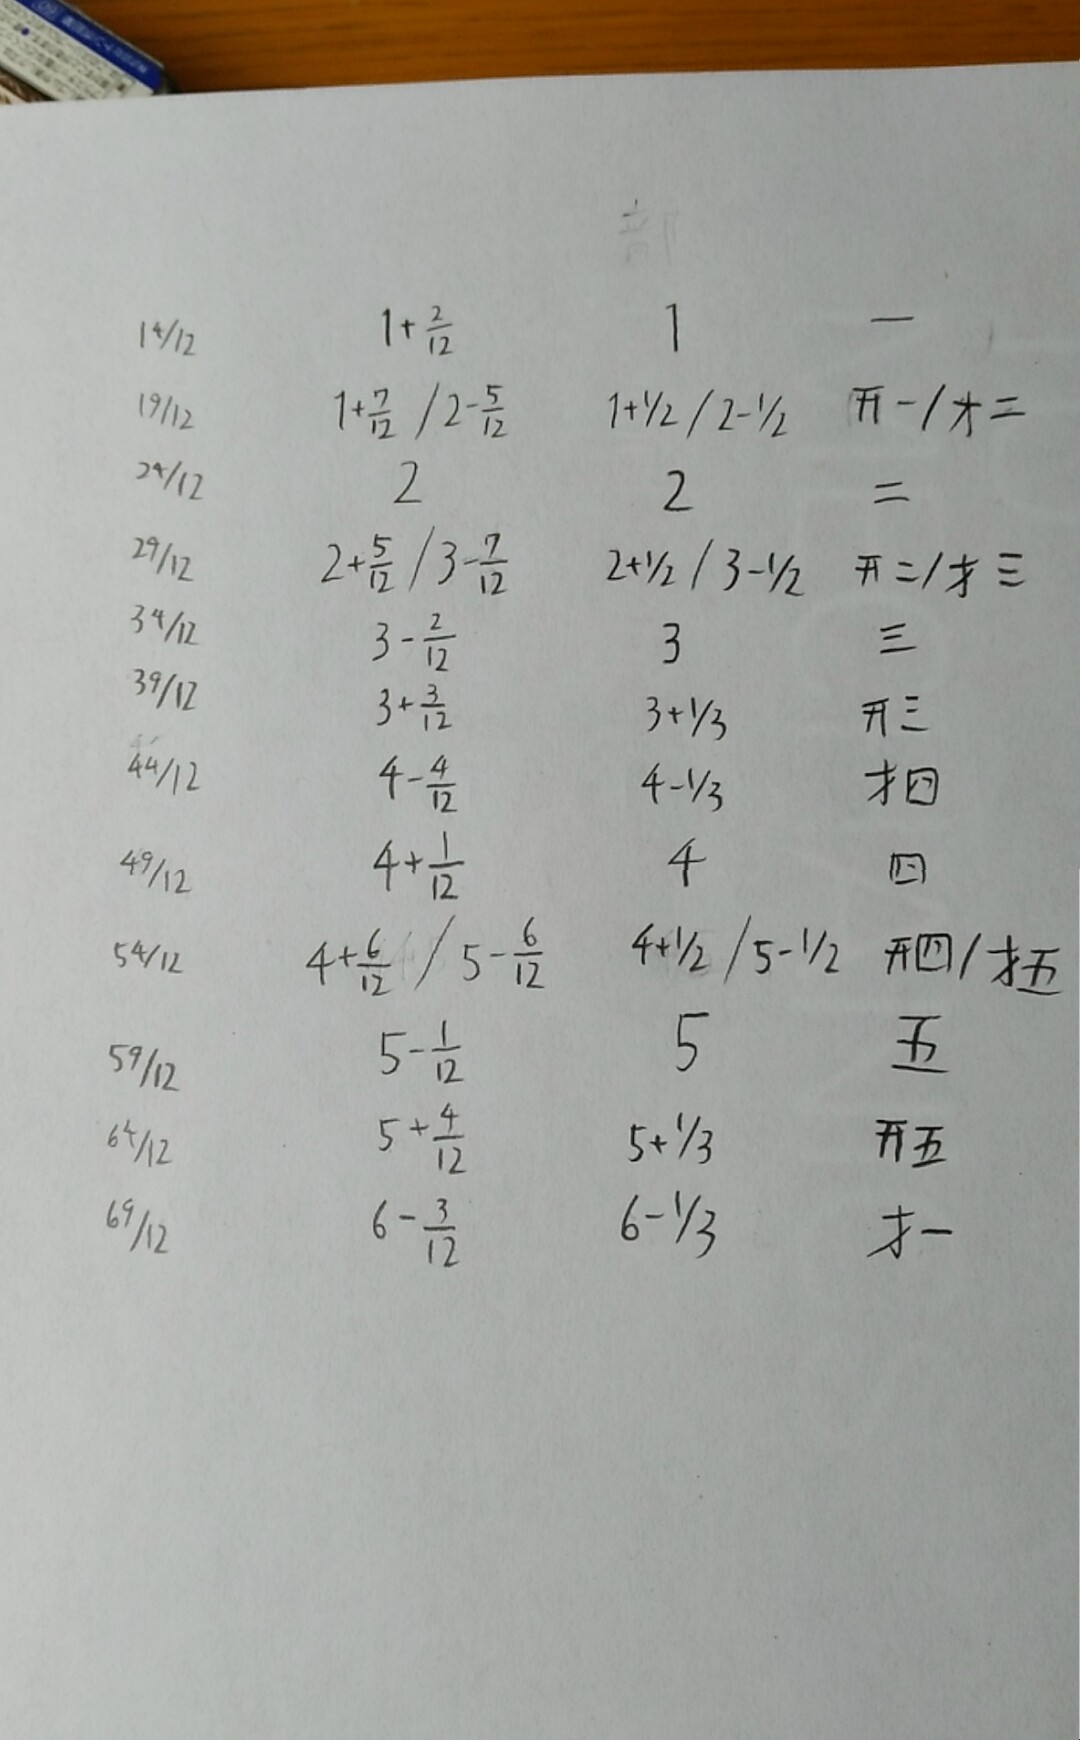 14/12 1+2/12 1 一
19/12 1+7/12 / 2-5/12 1+1/2 / 2-1/2 开一/才二
24/12 2 2 二
29/12 2+5/12 / 3-7/12 2+1/2 / 3-1/2 开二/才三
34/12 3-2/12 3 三
39/12 3+3/12 3+1/3 开三
44/12 4-4/12 4-1/3 才四
49/12 4+1/12 4 四
54/12 4+6/12 / 5-6/12 4+1/2 / 5-1/2 开四/才五
59/12 5-1/12 5 五
64/12 5+4/12 5+1/3 开五
69/12 6-3/12 6-1/3 才一